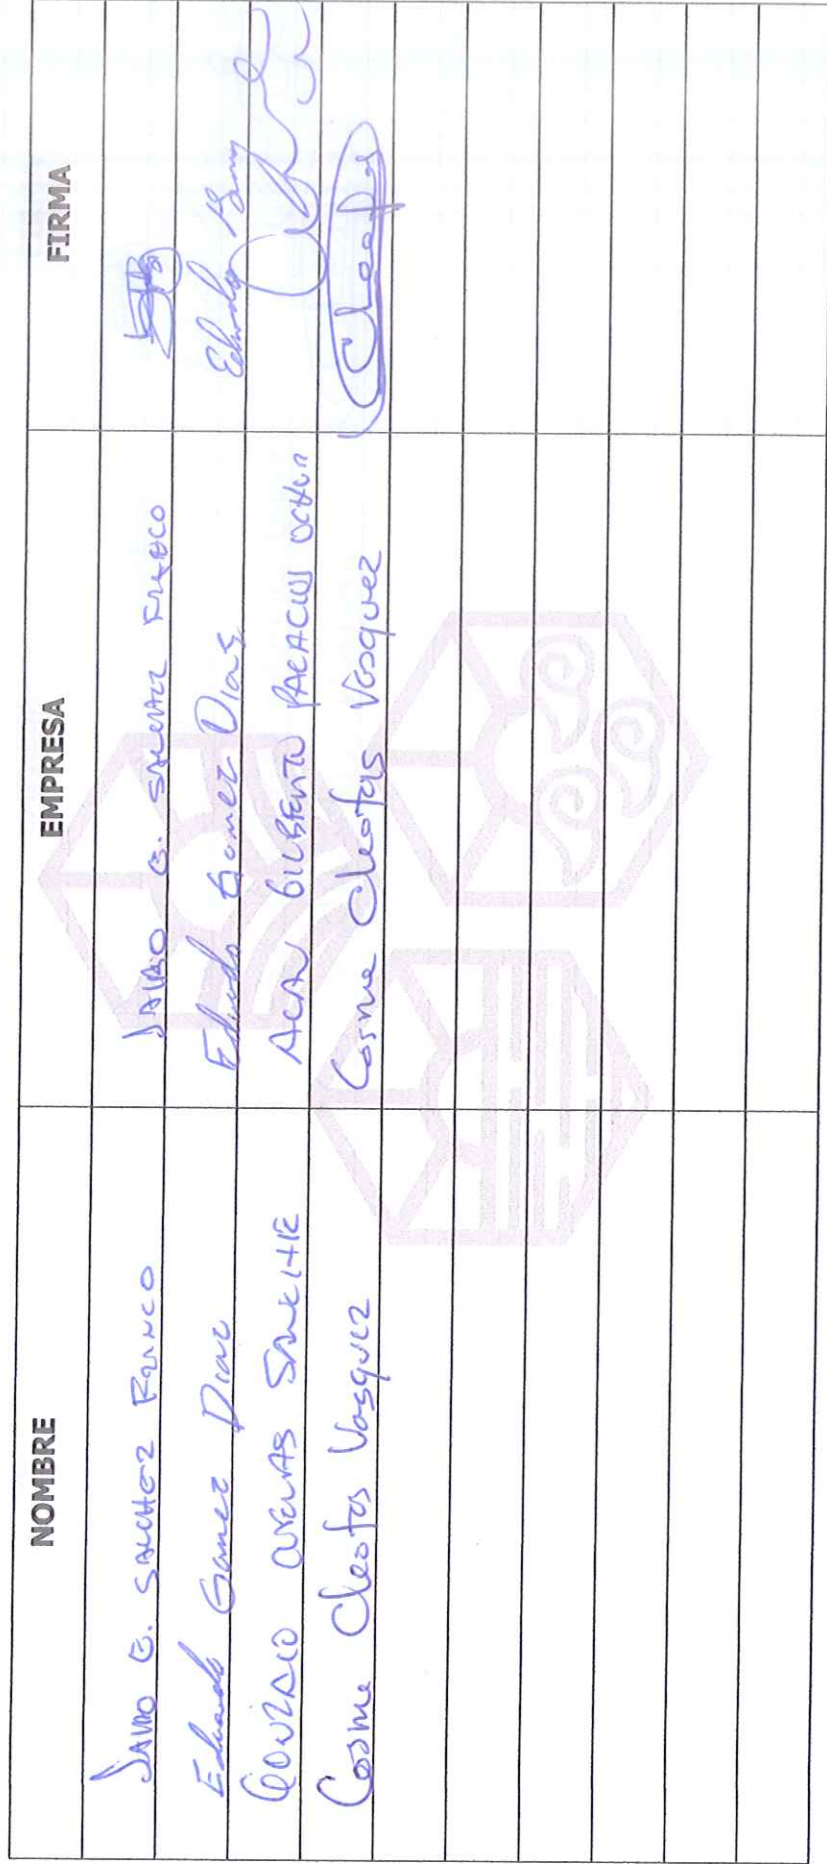 NOMBRE EMPRESA FIRMA
G. SANCHEZ FRANCO G. SANCHEZ FRANCO
Eduardo Gomez Diaz Eduardo Gomez Diaz Eduardo
GONZALO CUEVAS GILBERTO PALACIOS OCHOA
Cosme Cleofas Vasquez Cosme Cleofas Vasquez Cleofas